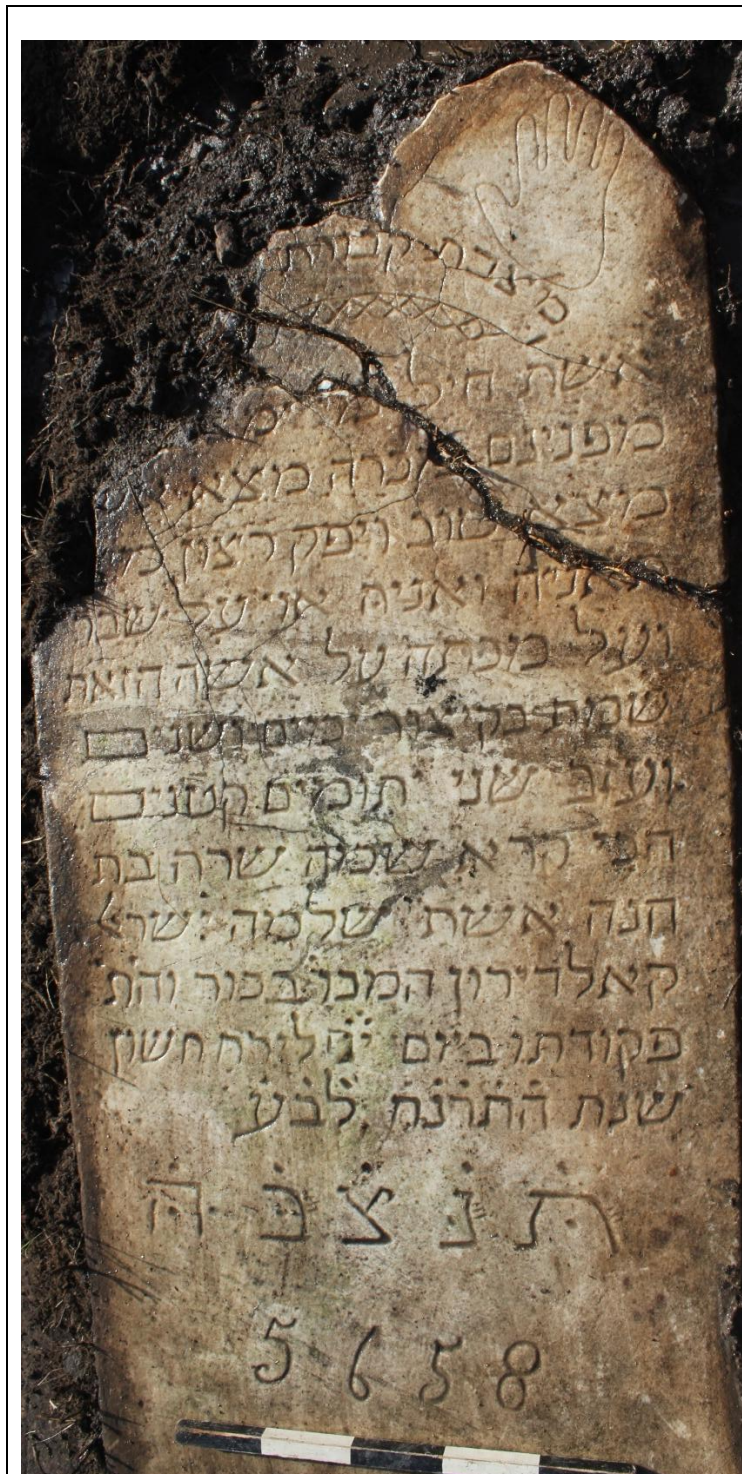 מצבת קבורת
אשת חיל
מפנינם מכרה מצא
מצא טוב ויפק רצון
ואניה אוי על שבר
ועל מכתה על אשה הזאת
שמת בקיצור ימים ושנים
ועזב שני יתומים קטנים
חכי קרא שמה שרה בת
חנה אשת שלמה ישראל
קאלדירון המכו בכור והת
פקודתו ביום יח לירח חשון
שנת התרנח לבע
תנצבה
5658